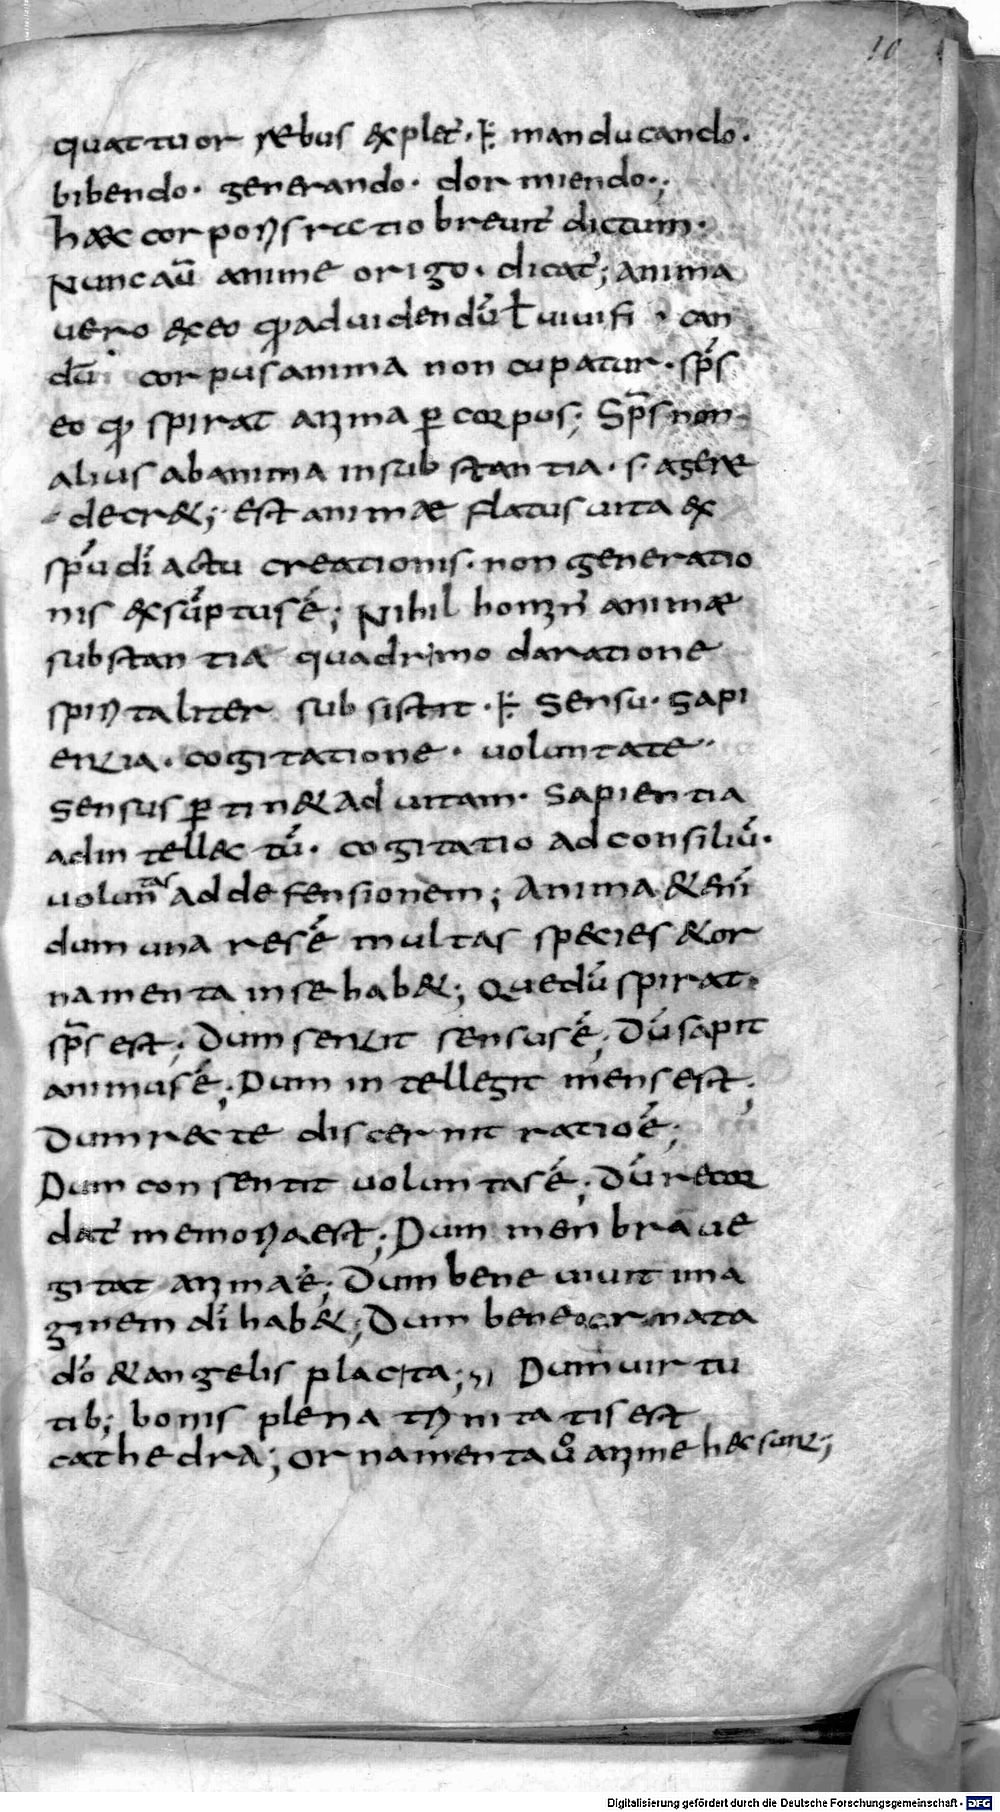 10
quattuor rebus explet̄. ł manducando.
bibendo. generando. dormiendo.;
haec corporis ractio breuit̄ dictum.
Nunc aū anime origo. dicat̄; anima
uero ex eo qđ ad uidendū ł uiuifi can
dū corpus anima non cupatur. sp̄s
eo qđ spirat anima ꝑ corpus; Sp̄s non
alius ab anima in substantia. s. agere
decr&; est animae flatus uita ex
sp̄u dī actu creationis. non generatio
nis exsūptus ē; Nihil homin̄ animae
substantia quadrimo da ratione
spiritaliter subsistit. ł sensu. sapi
entia. cogitatione. uoluntate.
Sensus ꝑtin& ad uitam. Sapientia
ad intellectū. cogitatio ad consiliū.
uoluntas ad defensionem; Anima &eni̅
dum una res ē multas species & or
namenta in se hab&; Que dū spirat.
sp̄s est; Dum sentit sensus ē; Dū sapit
animus ē; Dum intellegit mens est;
Dum recte discernit ratio ē;
Dum consentit uoluntas ē; Dū recor
dat̄ memoria est; Dum menbra ue
gitat anima ē; Dum bene uiuit ima
ginem dī hab&; Dum bene ornata
dō & angelis placita; Dum uirtu
tib; bonis plena trinitatis est
cathedra; ornamenta ů anime hec sunt;
Digitalisierung gefördert durch die Deutsche Forschungsgemeinschaft - DFG